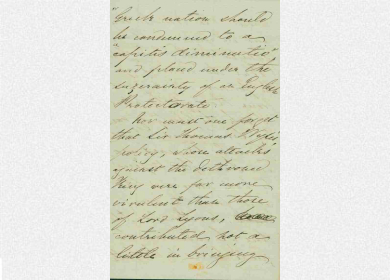 "Greek nation should
be condemned to a
"capitis diminutio"
and placed under the
suzerainty of an English
Protectorate.
Nor must one forget
that Sir Thomas Wyse's
policy, whose attacks
against the dethroned
King were far more
virulent than those
of Lord Lyons,
contributed not a
little in bringing